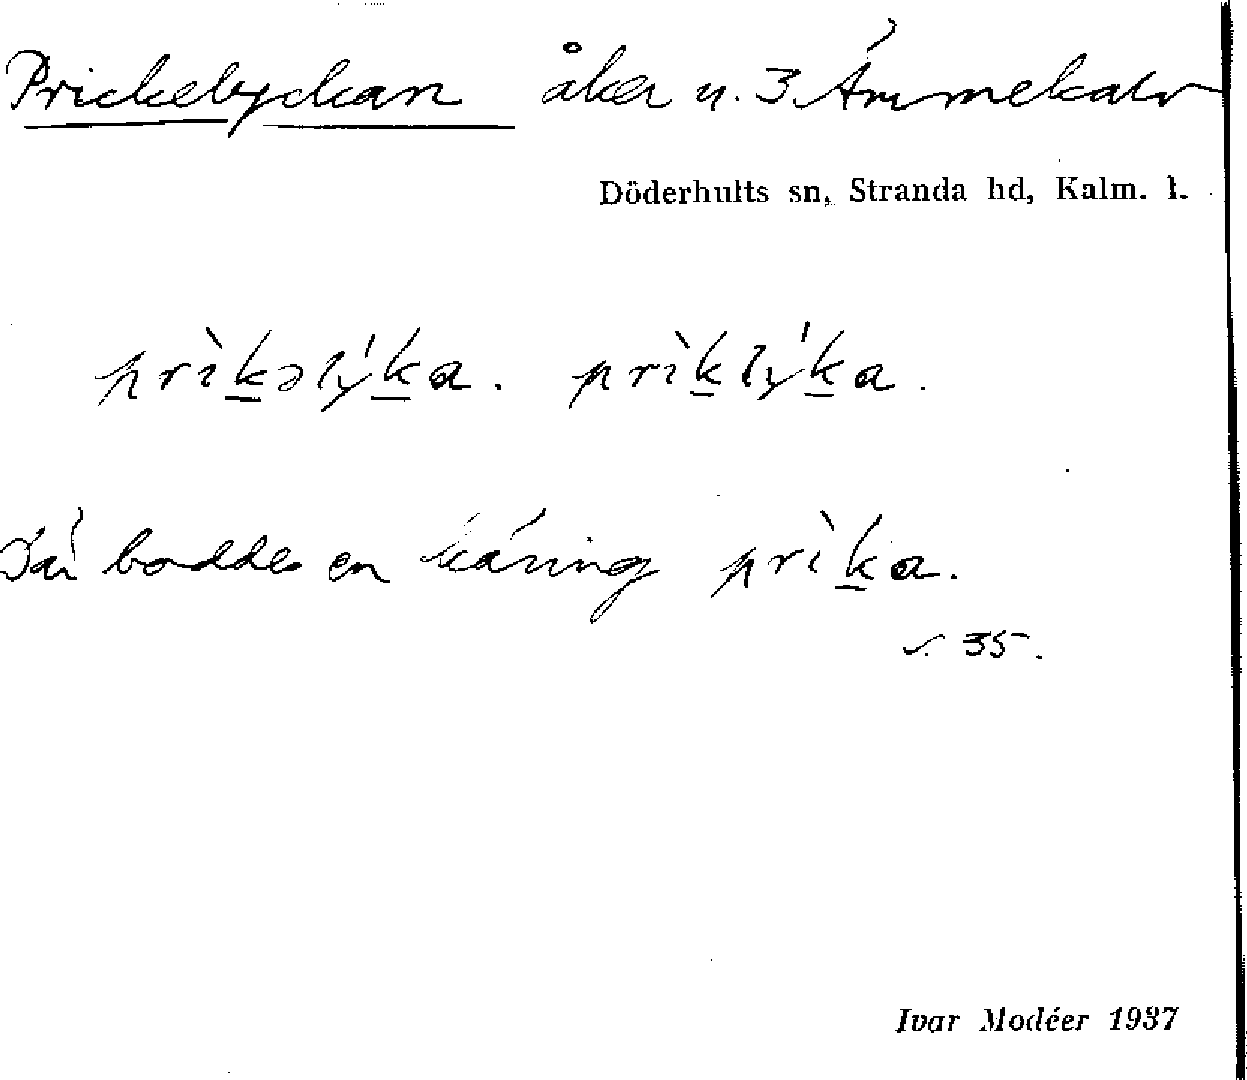 Prickelyckan åker n. 3 Ämmekalv
Döderhults sn, Stranda hd, Kalm. l.
prìkəlýka. prìklýka.
Där bodde en käring prìka.
s. 35.
Ivar Modéer 1937